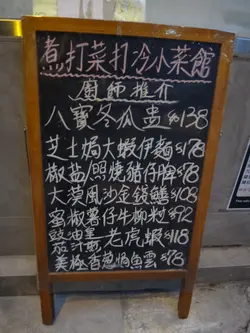 煮打菜打冷小菜館
廚師推介
八寶冬瓜盅 $138
芝士焗大蝦伊麵 $178
椒鹽 燒豬仔脾 $78
大漠風沙金錢鱔 $108
蜜椒薯仔牛柳粒 $72
豉油皇
茄汁煎 老虎蝦 $118
美極香蔥焗魚雲 $78